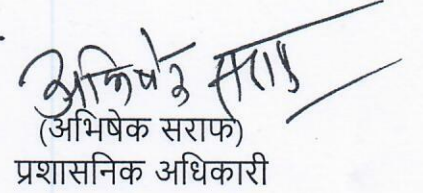 अभिषेक सराफ
(अभिषेक सराफ)
प्रशासनिक अधिकारी